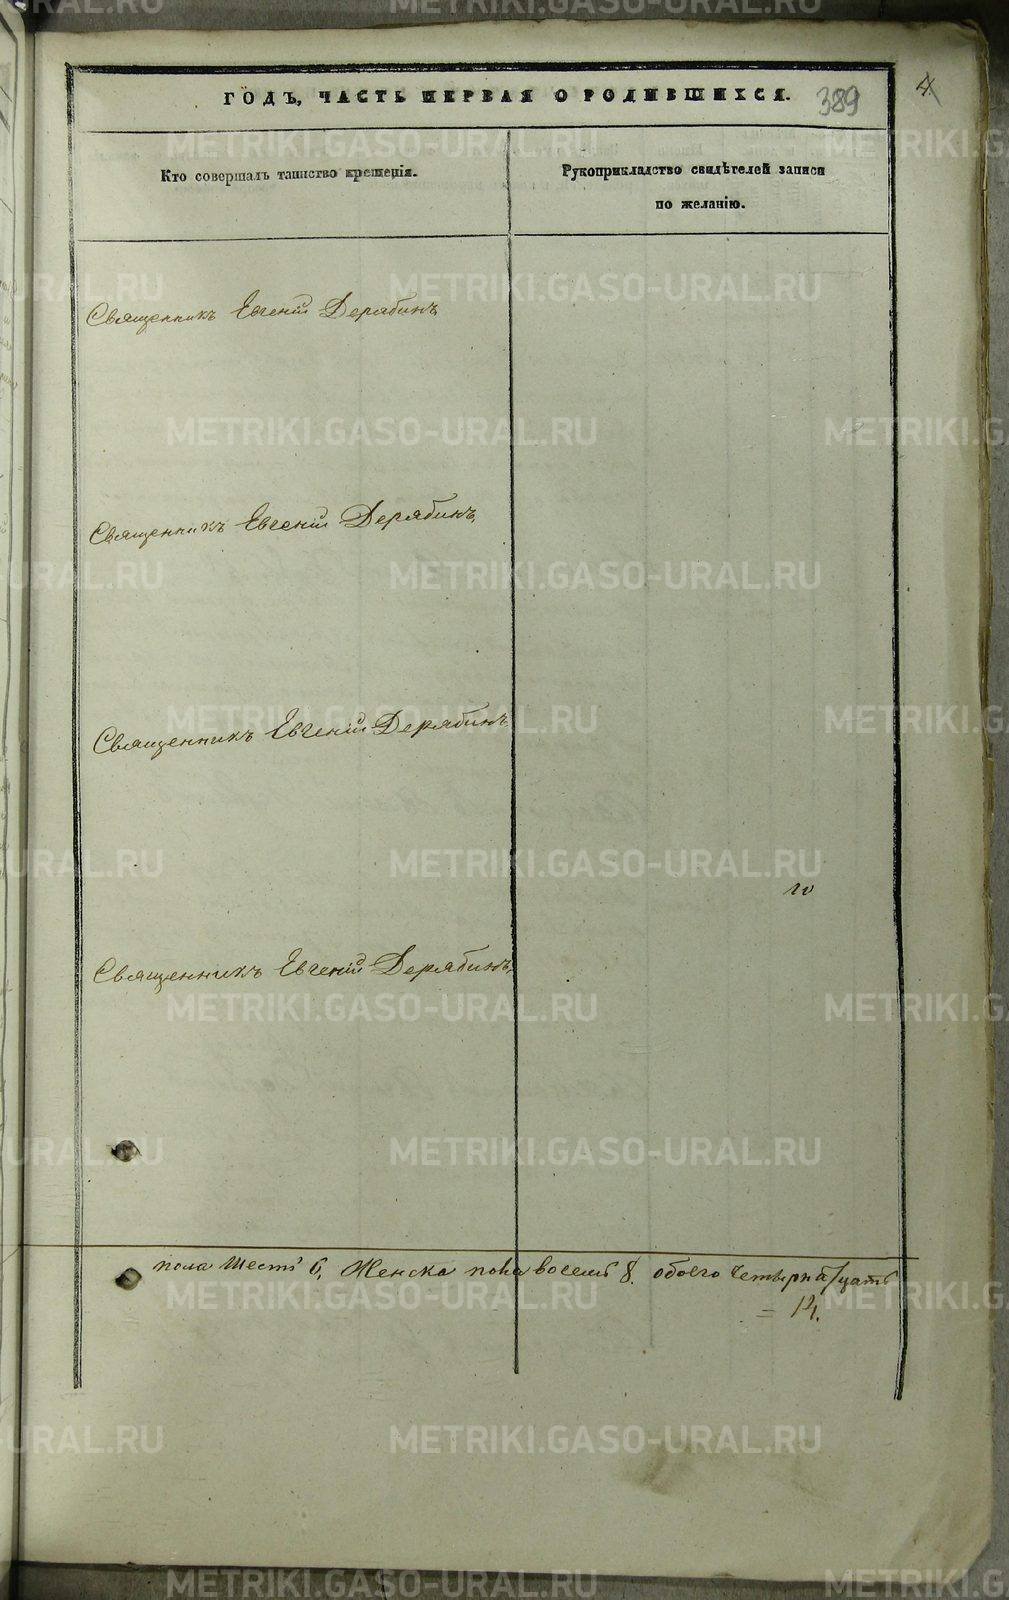 ГОДЪ, ЧАСТЬ ПЕРВАЯ О РОДИВШИХСЯ.
389
4
Кто совершалъ таинство крещенія.
Рукоприкладство свидѣтелей записи
по желанію.
Священникъ Евгеній Дерябинъ
Священникъ Евгеній Дерябинъ,
Священникъ Евгеній Дерябинъ
Священникъ Евгеній Дерябинъ,
пола шесть 6, Женска пола восемь 8. обоего четырнадцать
= 14.
METRIKI.GASO-URAL.RU